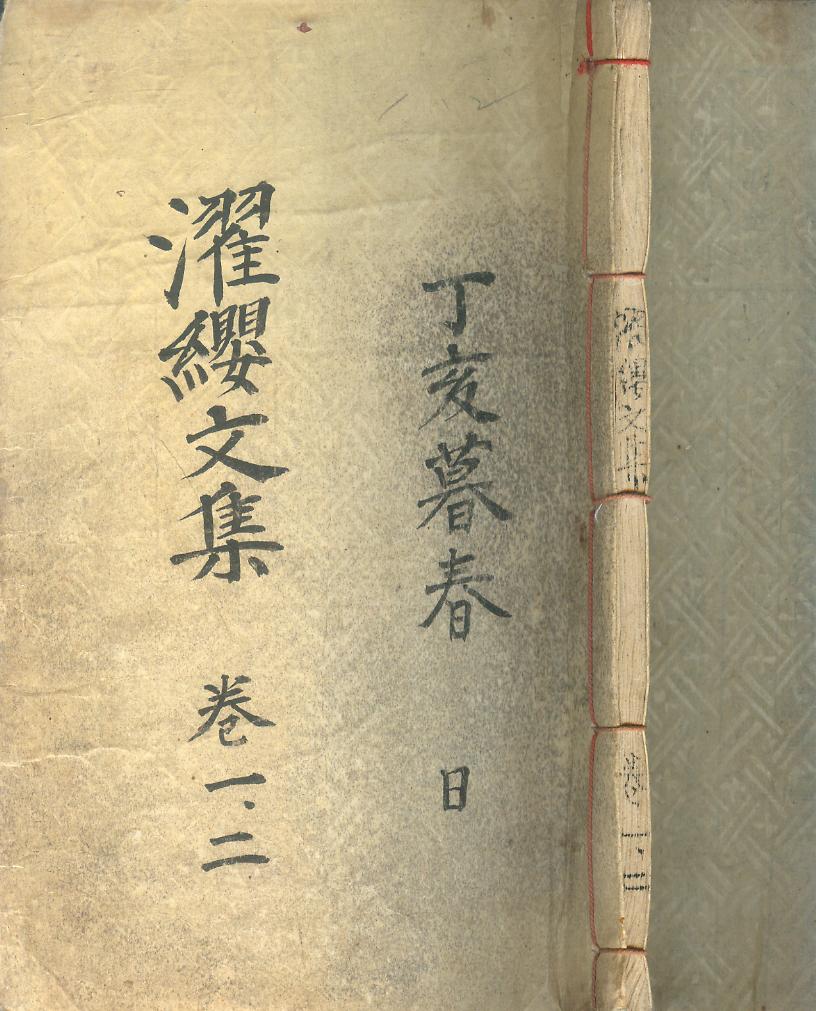 丁亥暮春 日
濯纓文集 卷一、二
濯纓文集 卷一、二